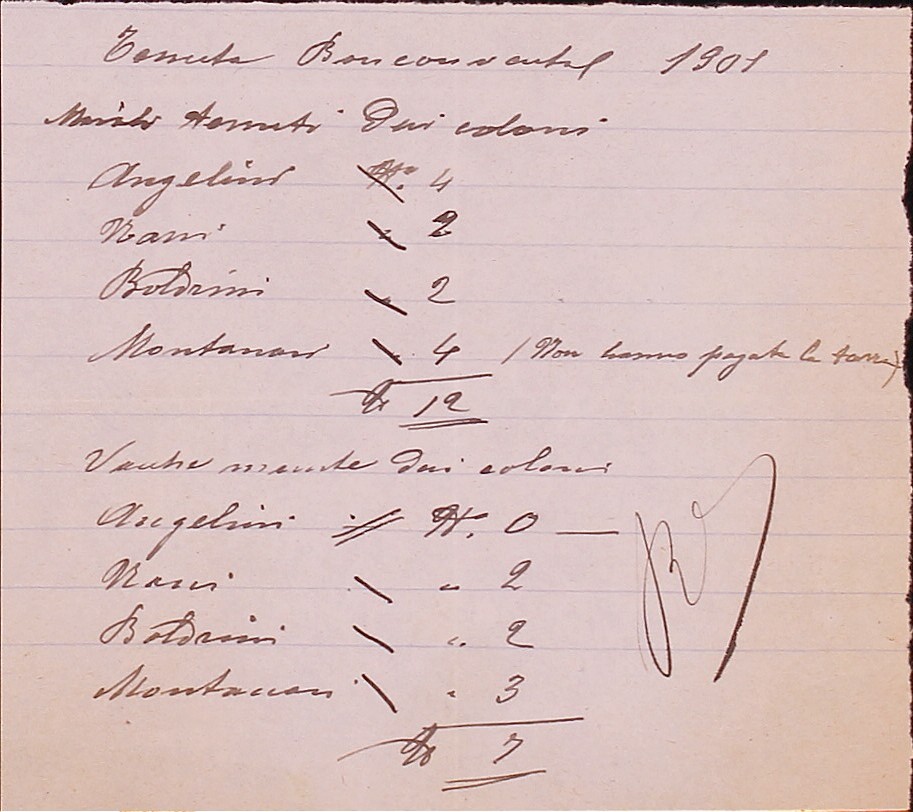 Tenuta Bonconventol 1901
Maiali tenuti dai coloni
Angelini N. 4
Nanni " 2
Boldrini " 2
Montanari " 4 (Non hanno pagato la tassa)
N 12
Vacche munte dai coloni
Angelini // N. 0 —
Nanni \ " 2
Boldrini \ " 2
Montanari \ " 3
N 7